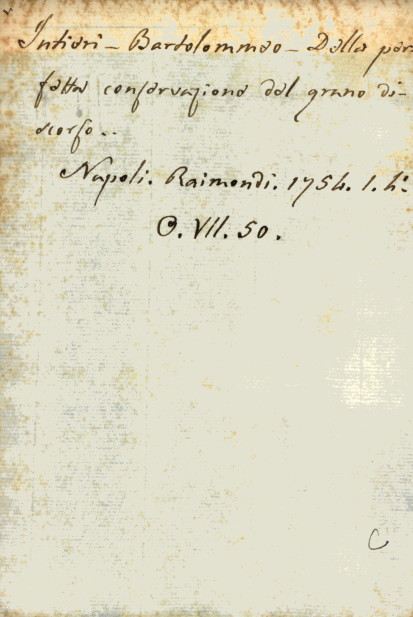 Intieri - Bartolommeo - Della per-
fetta conservazione del grano di-
scorso..
Napoli. Raimondi. 1754. 1. 4º.
O. VII. 50.
C